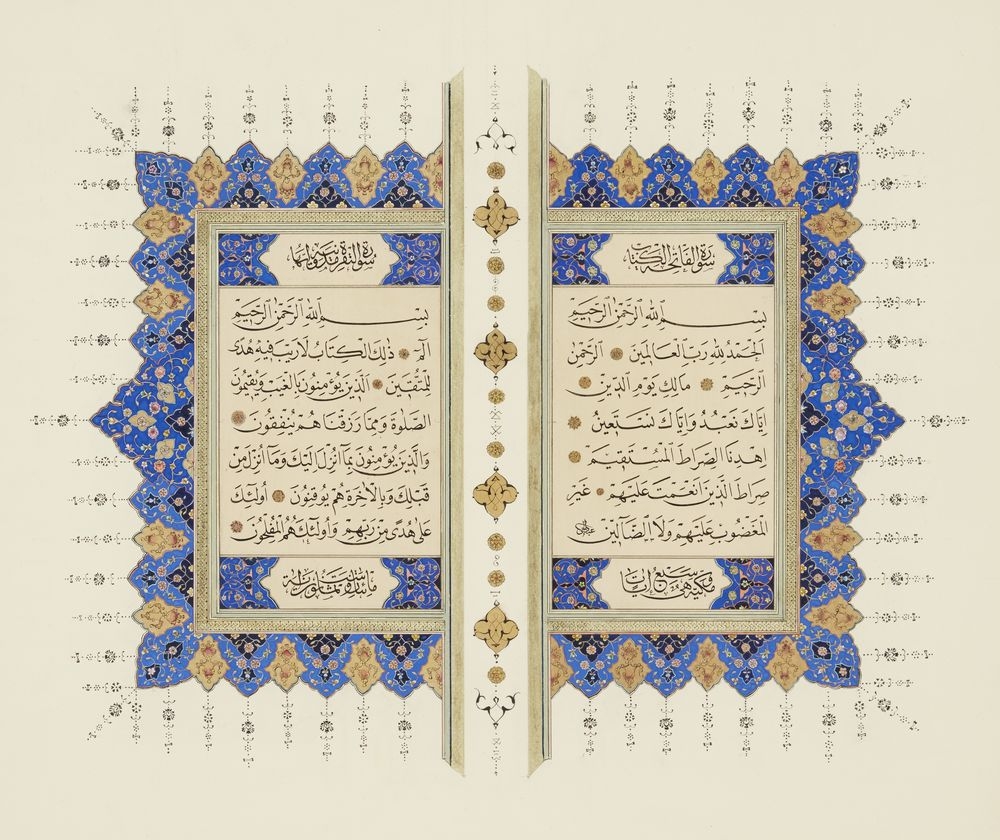 سورة الفاتحة الكتاب
بِسْمِ اللهِ الرَّحْمٰنِ الرَّحِيمِ
اَلْحَمْدُ لِلّٰهِ رَبِّ الْعَالَمِينَ الرَّحْمٰنِ
الرَّحِيمِ مَالِكِ يَوْمِ الدِّينِ
اِيَّاكَ نَعْبُدُ وَاِيَّاكَ نَسْتَعِينُ
اِهْدِنَا الصِّرَاطَ الْمُسْتَقِيمَ
صِرَاطَ الَّذِينَ اَنْعَمْتَ عَلَيْهِمْ غَيْرِ
الْمَغْضُوبِ عَلَيْهِمْ وَلَا الضَّالِّينَ
مكية وهي سبع ايات
سورة البقرة مدنية وايها
بِسْمِ اللهِ الرَّحْمٰنِ الرَّحِيمِ
الٓمٓ ذٰلِكَ الْكِتَابُ لَا رَيْبَ فِيهِ هُدًى
لِلْمُتَّقِينَ الَّذِينَ يُؤْمِنُونَ بِالْغَيْبِ وَيُقِيمُونَ
الصَّلٰوةَ وَمِمَّا رَزَقْنَاهُمْ يُنْفِقُونَ
وَالَّذِينَ يُؤْمِنُونَ بِمَا اُنْزِلَ اِلَيْكَ وَمَا اُنْزِلَ مِنْ
قَبْلِكَ وَبِالْاٰخِرَةِ هُمْ يُوقِنُونَ اُولٰئِكَ
عَلٰى هُدًى مِنْ رَبِّهِمْ وَاُولٰئِكَ هُمُ الْمُفْلِحُونَ
مائتان وست وثمانون اية